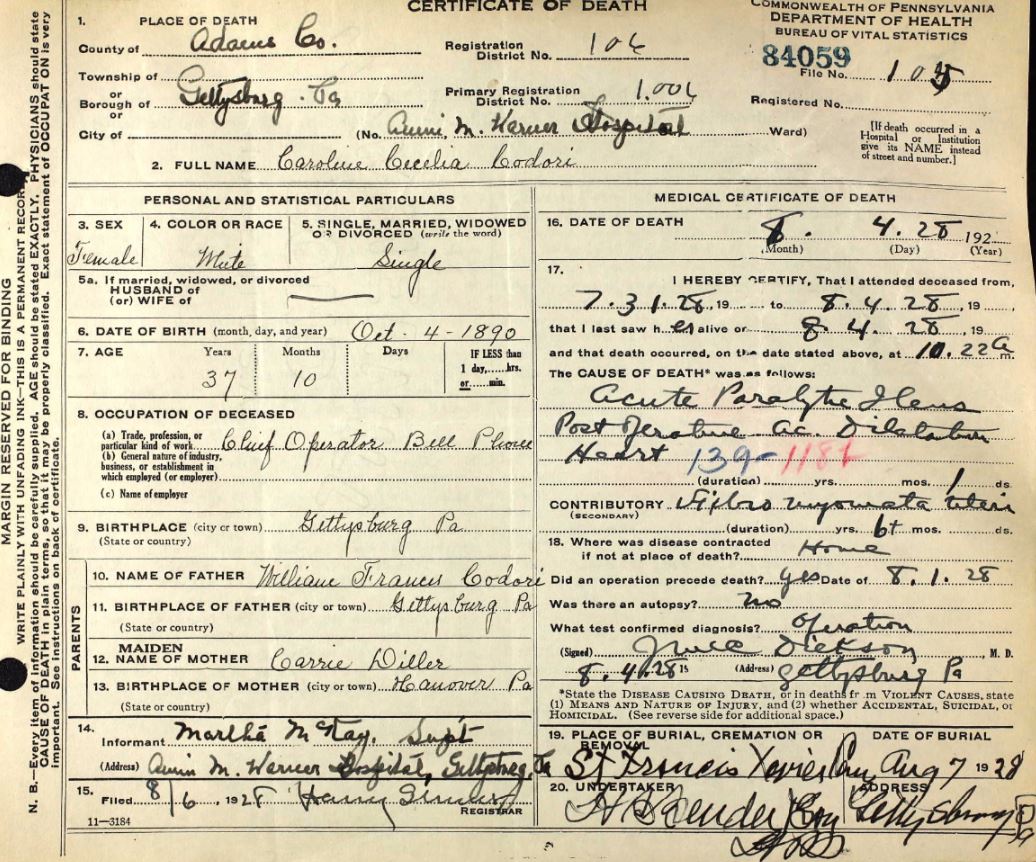 CERTIFICATE OF DEATH
COMMONWEALTH OF PENNSYLVANIA
DEPARTMENT OF HEALTH
BUREAU OF VITAL STATISTICS
1. PLACE OF DEATH
County of Adams Co.
Registration District No. 106
84059
File No. 105
Township of
or
Borough of Gettysburg Pa
Primary Registration District No. 1.006
Registered No.
or
City of
(No. Annie M. Warner Hospital Ward)
[If death occurred in a Hospital or Institution give its NAME instead of street and number.]
2. FULL NAME Caroline Cecelia Codori
PERSONAL AND STATISTICAL PARTICULARS
3. SEX
Female
4. COLOR OR RACE
White
5. SINGLE, MARRIED, WIDOWED OR DIVORCED (write the word)
Single
5a. If married, widowed, or divorced
HUSBAND of
(or) WIFE of
6. DATE OF BIRTH (month, day, and year) Oct - 4 - 1890
7. AGE Years Months Days IF LESS than
1 day,......hrs.
or......min.
37 10
8. OCCUPATION OF DECEASED
(a) Trade, profession, or particular kind of work Chief Operator Bell Phone
(b) General nature of industry, business, or establishment in which employed (or employer)
(c) Name of employer
9. BIRTHPLACE (city or town) Gettysburg Pa
(State or country)
PARENTS
10. NAME OF FATHER William Francis Codori
11. BIRTHPLACE OF FATHER (city or town) Gettysburg Pa
(State or country)
12. MAIDEN NAME OF MOTHER Carrie Diller
13. BIRTHPLACE OF MOTHER (city or town) Hanover Pa
(State or country)
14.
Informant Martha McKay, Supt
(Address) Annie M. Warner Hospital, Gettysburg, Pa
15.
Filed 8/6, 1928 Henry
REGISTRAR
11-3184
MEDICAL CERTIFICATE OF DEATH
16. DATE OF DEATH 8. 4. 28 192
(Month) (Day) (Year)
17.
I HEREBY CERTIFY, That I attended deceased from,
7.31.28, 19 to 8.4.28, 19
that I last saw her alive on 8 4. 28, 19
and that death occurred, on the date stated above, at 10.22 a m.
The CAUSE OF DEATH* was as follows:
Acute Paralytic Ileus
Post Operative Ac Dilatation
Heart 139-
(duration) yrs. mos. 1 ds.
CONTRIBUTORY Fibro myomata uteri
(SECONDARY)
(duration) yrs. 6+ mos. ds.
18. Where was disease contracted
if not at place of death? Home
Did an operation precede death? yes Date of 8.1.28
Was there an autopsy? no
What test confirmed diagnosis? Operation
(Signed) Dickson, M. D.
8. 4. 28 (Address) Gettysburg Pa
*State the DISEASE CAUSING DEATH, or in deaths from VIOLENT CAUSES, state
(1) MEANS AND NATURE OF INJURY, and (2) whether ACCIDENTAL, SUICIDAL, or
HOMICIDAL. (See reverse side for additional space.)
19. PLACE OF BURIAL, CREMATION OR REMOVAL
DATE OF BURIAL
St Francis Xavier Aug 7 1928
20. UNDERTAKER
ADDRESS
H B Bender Gettysburg Pa
MARGIN RESERVED FOR BINDING
WRITE PLAINLY WITH UNFADING INK—THIS IS A PERMANENT RECORD
N. B.—Every item of information should be carefully supplied. AGE should be stated EXACTLY. PHYSICIANS should state
CAUSE OF DEATH in plain terms, so that it may be properly classified. Exact statement of OCCUPATION is very
important. See instructions on back of certificate.